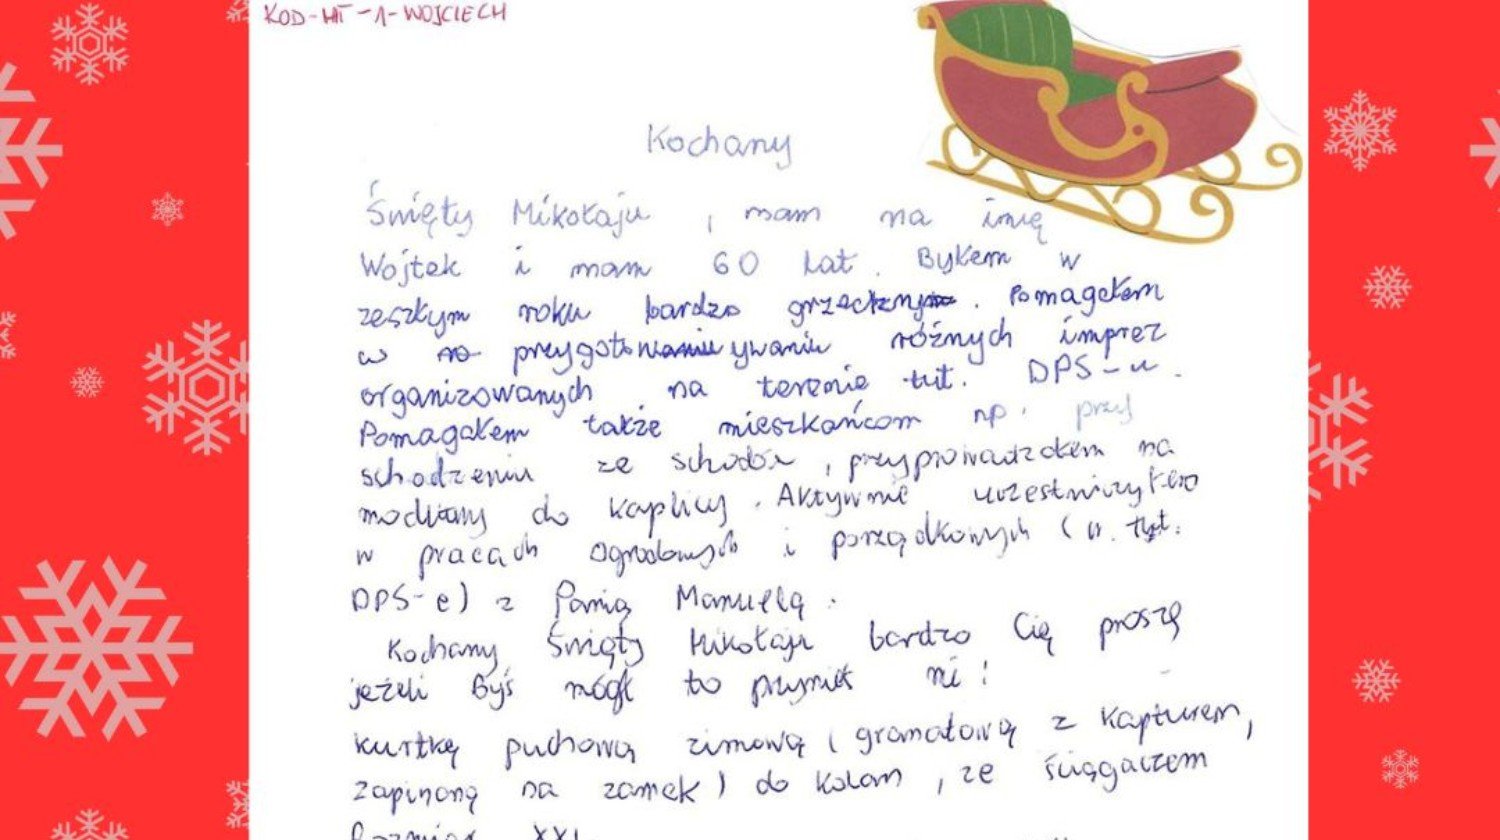 KOD-MT-1-WOJCIECH
Kochany
Święty Mikołaju, mam na imię
Wojtek i mam 60 lat. Byłem w
zeszłym roku bardzo grzeczny. Pomagałem
w przygotowywaniu różnych imprez
organizowanych na terenie tut. DPS-u.
Pomagałem także mieszkańcom np. przy
schodzeniu ze schodów, przyprowadzałem na
modlitwy do kaplicy. Aktywnie uczestniczyłem
w pracach ogrodowych i porządkowych (w tut.
DPS-e) z Panią Manuelą.
Kochany Święty Mikołaju bardzo Cię proszę
jeżeli Byś mógł to przynieś mi:
kurtkę puchową zimową (granatową z kapturem,
zapinaną na zamek) do kolan, ze ściągaczem
Rozmiar XXL